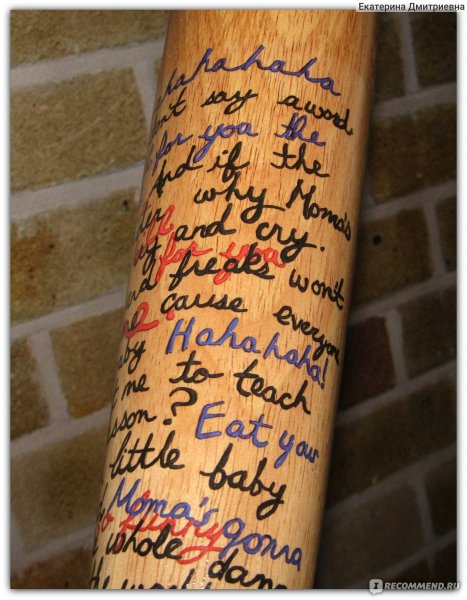 Екатерина Дмитриевна
hahahaha
say a word
for you the
And if the
why Moma's
and cry.
for you
freaks won't
cause everyone
Hahahaha!
me to teach
? Eat your
little baby
Moma's gonna
funny
whole damn
IRECOMMEND.RU